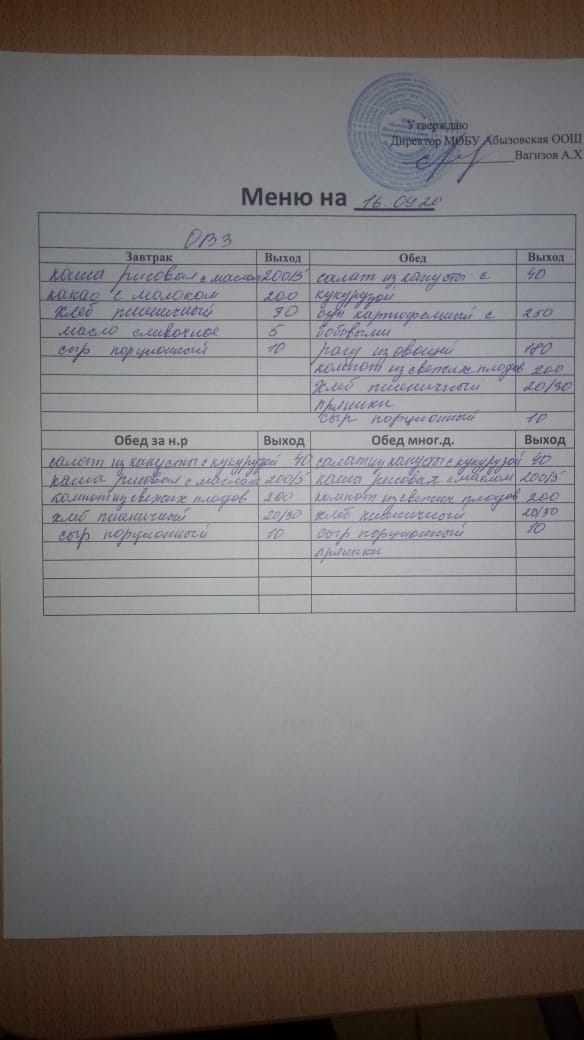 Утверждаю
Директор МОБУ Абызовская ООШ
Вагизов А.Х
Меню на 16.09.20
ОВЗ
Завтрак Выход Обед Выход
каша рисовая с маслом 200/5 салат из капусты с 40
какао с молоком 200 кукурузой
хлеб пшеничный 30 суп картофельный с 250
масло сливочное 5 бобовыми
сыр порционный 10 рагу из овощей 180
компот из свежих плодов 200
хлеб пшеничный 20/30
пряники
сыр порционный 10
Обед за н.р Выход Обед мног.д. Выход
салат из капусты с кукурузой 40 салат из капусты с кукурузой 40
каша рисовая с маслом 200/5 каша рисовая с маслом 200/5
компот из свежих плодов 200 компот из свежих плодов 200
хлеб пшеничный 20/30 хлеб пшеничный 20/30
сыр порционный 10 сыр порционный 10
пряники